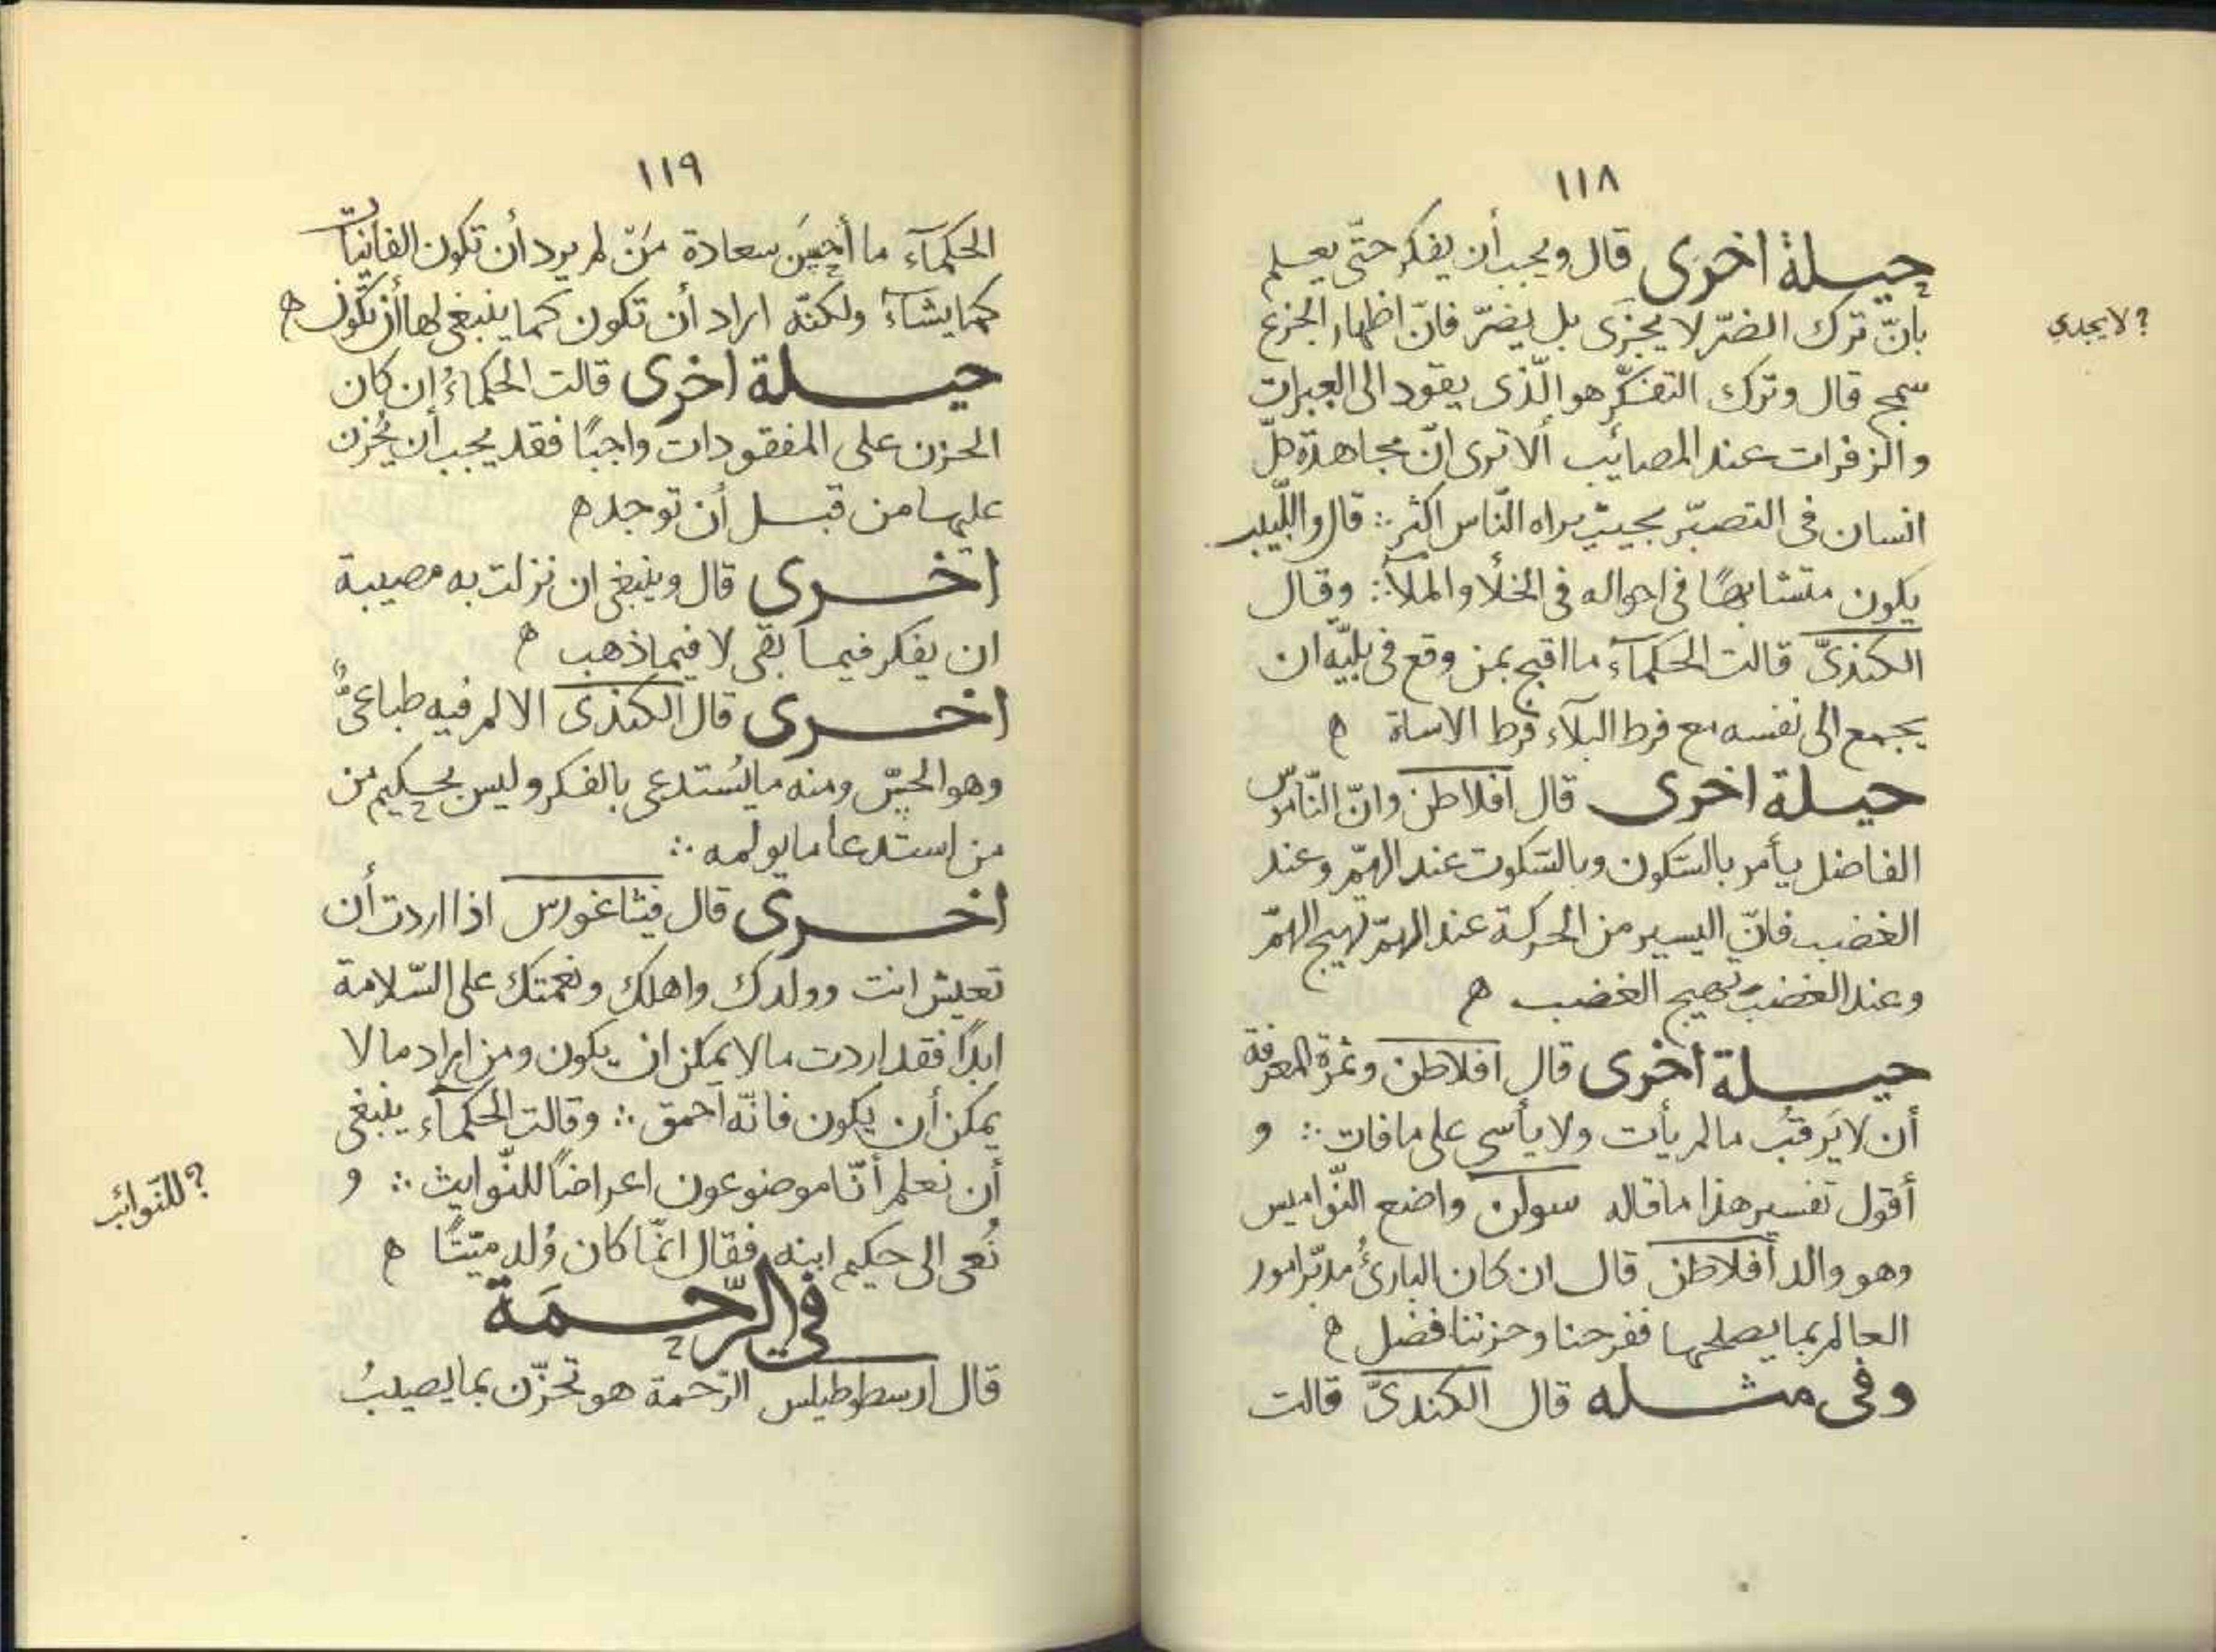 ١١٨
حيلة اخرى قال ويجب أن يفكر حتّى يعلم
بانّ ترك الضرّ لا يجزى بل يضرّ فانّ اظهار الجزع
؟ لا يجدي
سمج قال وترك التفكّر هو الّذى يقود الى العبرات
والزفرات عند المصائب ألا ترى انّ مجاهدة كلّ
انسان فى التصبّر بحيث يراه النّاس اكثر ∴ قال واللّبيب
يكون متشابهًا فى احواله فى الخلأ والملأ ∴ وقال
الكندىّ قالت الحكمآء ما اقبح بمن وقع فى بليّه ان
يجمع الى نفسه مع فرط البلآء فرط الاساة ه
حيلة اخرى قال افلاطن وانّ النّاموس
الفاضل يأمر بالسّكون وبالسّكوت عند الهمّ وعند
الغضب فانّ اليسير من الحركة عند الهمّ تهيج الهمّ
وعند الغضب تهيج الغضب ه
حيلة اخرى قال افلاطن وثمرة المعرفة
أن لا يَرقبُ ما لم يأت ولا يأسى على ما فات ∴ و
أقول تفسير هذا ما قاله سولن واضع النّواميس
وهو والد أفلاطن قال ان كان البارئُ مدبّر امور
العالم بما يصلحها ففرحنا وحزننا فضل ه
وفى مثله قال الكندىّ قالت
١١٩
الحكمآء ما أحسَن سعادة مَنّ لم يرد أن تكون الفانيات
كما يشآء ولكنّه اراد أن تكون كما ينبغى لها أن تكون ه
حيلة اخرى قالت الحكماءُ إن كان
الحزن على المفقودات واجبًا فقد يجب أن يُحزن
عليها من قبل أن توجد ه
اخرى قال وينبغى ان نزلت به مصيبة
ان يفكر فيما بقى لا فيما ذهب ه
اخرى قال الكندى الالم فيه طباعىٌّ
وهو الحسّ ومنه ما يُستدعى بالفكر وليس بحكيم من
من استدعا ما يولمه ∴
اخرى قال فيثاغورس اذا اردت أن
تعيش انت وولدك واهلك ونعمتك على السّلامة
ابدًا فقد اردت ما لا يمكن ان يكون ومن اراد ما لا
يمكن أن يكون فانّه احمق ∴ وقالت الحكمآء ينبغى
أن نعلم أنّا موضوعون اعراضًا للنّوايث ∴ و
؟ للنّوائب
نُعى الى حكيم ابنه فقال انّما كان وُلد ميّتًا ه
فى الرّحمَة
قال ارسطوطيلس الرّحمة هو تحزّن بما يصيبُ